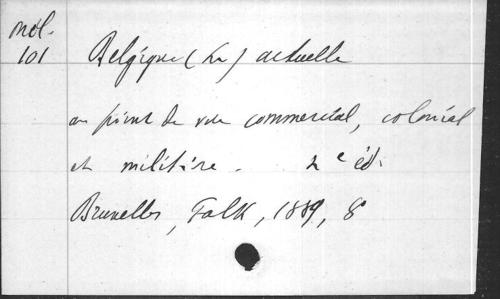 Mél.
101
Belgique (La) actuelle
au point de vue commercial, colonial
et militaire. 2e éd.
Bruxelles, Falk, 1889, 8°